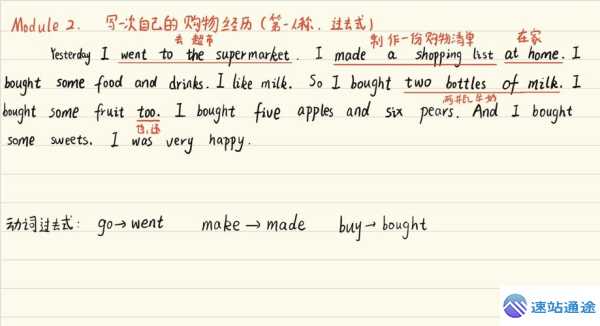 Module 2. 写一次自己的购物经历(第一人称、过去式)
去 超市 制作一份购物清单 在家
Yesterday I went to the supermarket. I made a shopping list at home. I
bought some food and drinks. I like milk. So I bought two bottles of milk. I
两瓶牛奶
bought some fruit too. I bought five apples and six pears. And I bought
也,还
some sweets. I was very happy.
动词过去式: go→went make→made buy→bought
速站通途